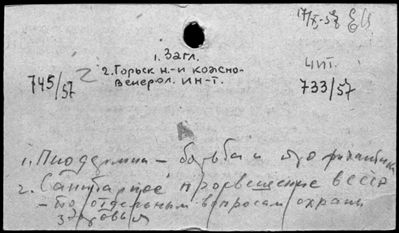 17/X-57
1. Загл.
2. Горьк н.-и кожно-
венерол. ин-т.
745/57
2
чит.
733/57
1. Пиодермия – борьба и
2. Санитарное просвещение
– по отдельным вопросам охраны
здоровья